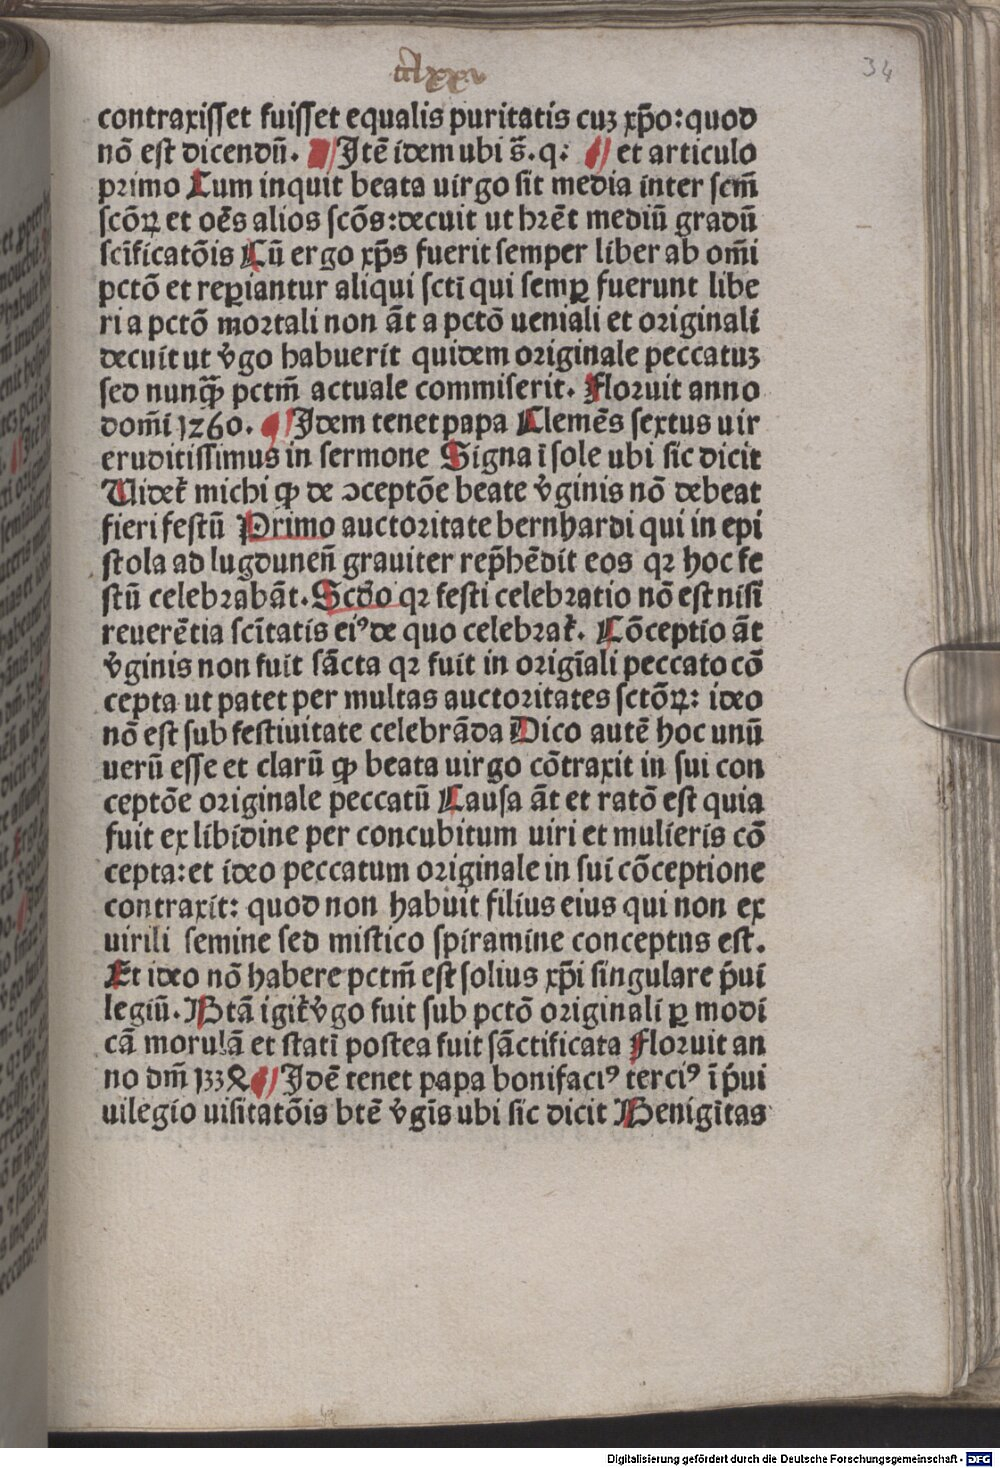 34
contraxisset fuisset equalis puritatis cuʒ xp̄o: quod
nō est dicendū. Itē idem ubi s̄. q: et articulo
primo Cum inquit beata uirgo sit media inter sem̄
scōꝝ et oēs alios scōs: decuit ut hrēt mediū gradū
scīficatōis Cū ergo xp̄s fuerit semper liber ab om̄i
pctō et reꝑiantur aliqui sctī qui semꝑ fuerunt libe
ri a pctō mortali non āt a pctō ueniali et originali
decuit ut v̄go habuerit quidem originale peccatuʒ
sed nunqꝫ̄ pctm̄ actuale commiserit. Floruit anno
dom̄i 1260. Idem tenet papa Clemēs sextus uir
eruditissimus in sermone Signa ī sole ubi sic dicit
Uidet᷑ michi ꝙ de ꝯceptōe beate v̄ginis nō debeat
fieri festū Primo auctoritate bernhardi qui in epi
stola ad lugdunen̄ grauiter rep̄hēdit eos qꝛ hoc fe
stū celebrabāt. Scdo qꝛ festi celebratio nō est nisi
reuerētia scītatis eiꝰ de quo celebrat᷑. Cōceptio āt
v̄ginis non fuit sācta qꝛ fuit in origīali peccato cō
cepta ut patet per multas auctoritates sctōꝝ: ideo
nō est sub festiuitate celebrāda Dico autē hoc unū
uerū esse et clarū ꝙ beata uirgo cōtraxit in sui con
ceptōe originale peccatū Causa āt et ratō est quia
fuit ex libidine per concubitum uiri et mulieris cō
cepta: et ideo peccatum originale in sui cōceptione
contraxit: quod non habuit filius eius qui non ex
uirili semine sed mistico spiramine conceptus est.
Et ideo nō habere pctm̄ est solius xp̄i singulare p̄ui
legiū. Btā igit᷑ v̄go fuit sub pctō originali ꝑ modi
cā morulā et statī postea fuit sāctificata Floruit an
no dm̄ 133ꝝ Idē tenet papa bonifaciꝰ terciꝰ ī p̄ui
uilegio uisitatōis btē v̄gīs ubi sic dicit Benigītas
Digitalisierung gefördert durch die Deutsche Forschungsgemeinschaft - DFG